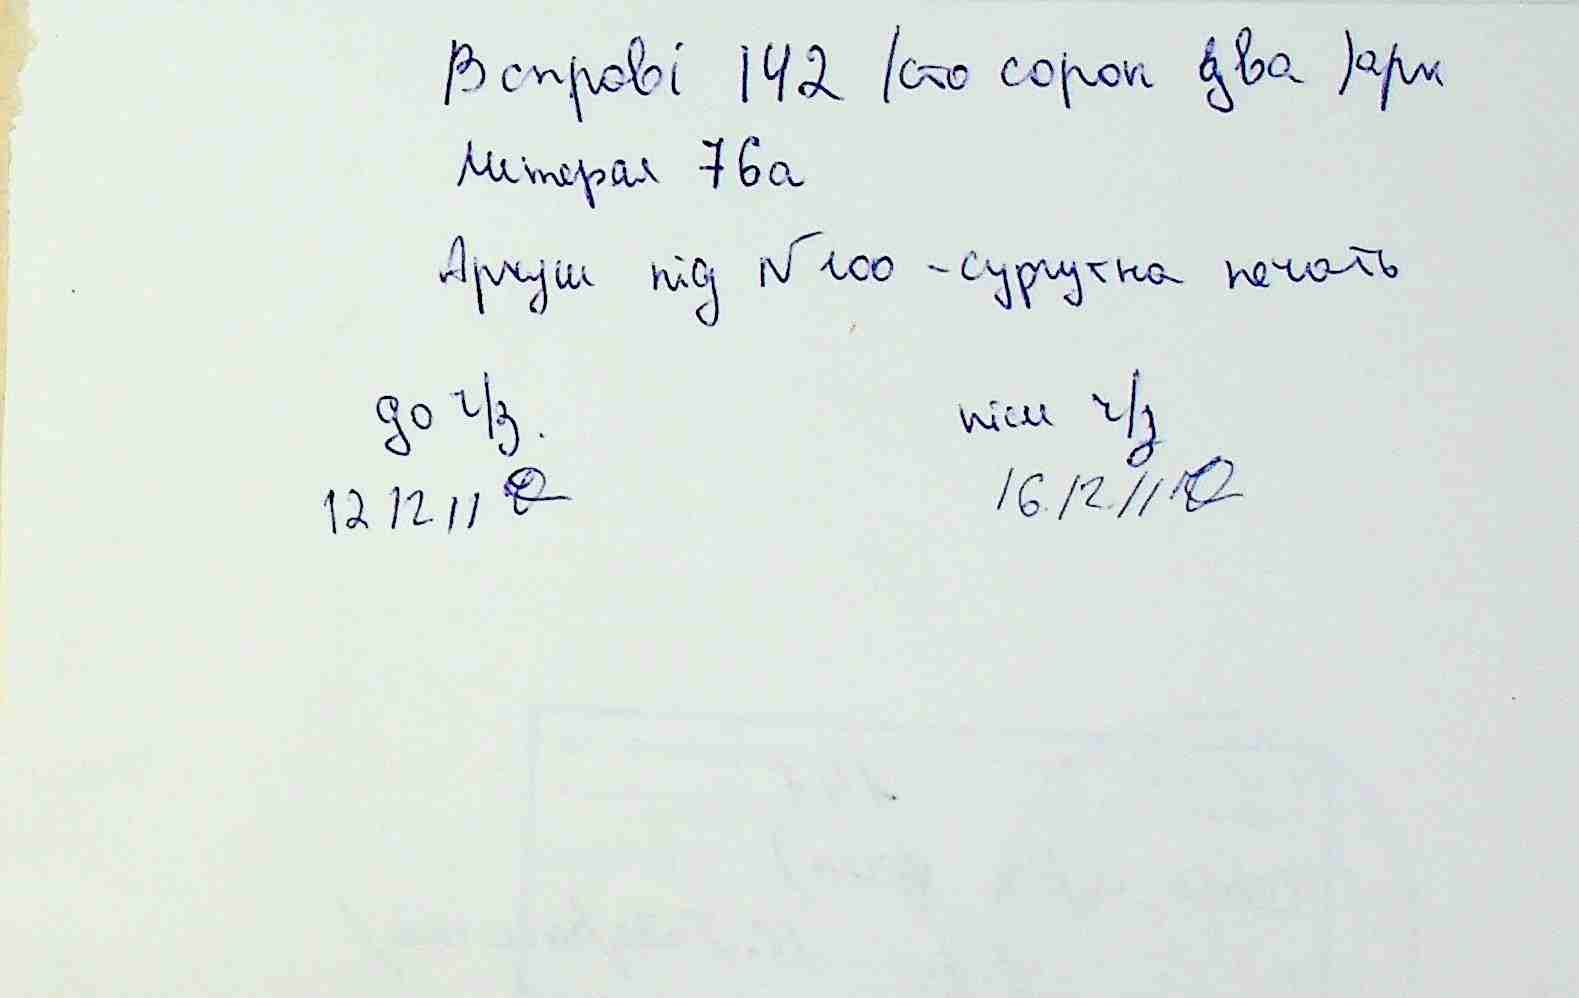 В справі 142 /сто сорок два/ арк
Литерал 76а
Аркуш під № 100 - сургутна печать
до ч/з. після ч/з
12 12 11 16.12.11